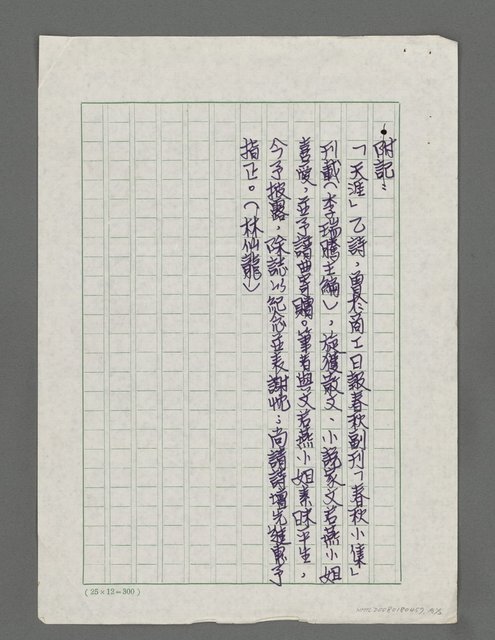 附記：
「天涯」乙詩，曾於商工日報春秋副刊「春秋小集」
刊載（李瑞騰主編），旋獲散文、小說家文若燕小姐
喜愛，並予譜曲寄贈。筆者與文若燕小姐素昧平生，
今予披露，除誌以紀念並表謝忱；尚請詩壇先進惠予
指正。（林仙龍）
(25×12=300)